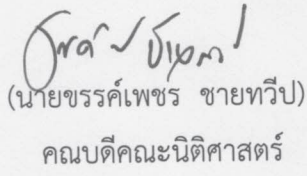 (นายขรรค์เพชร ชายทวีป)
คณบดีคณะนิติศาสตร์